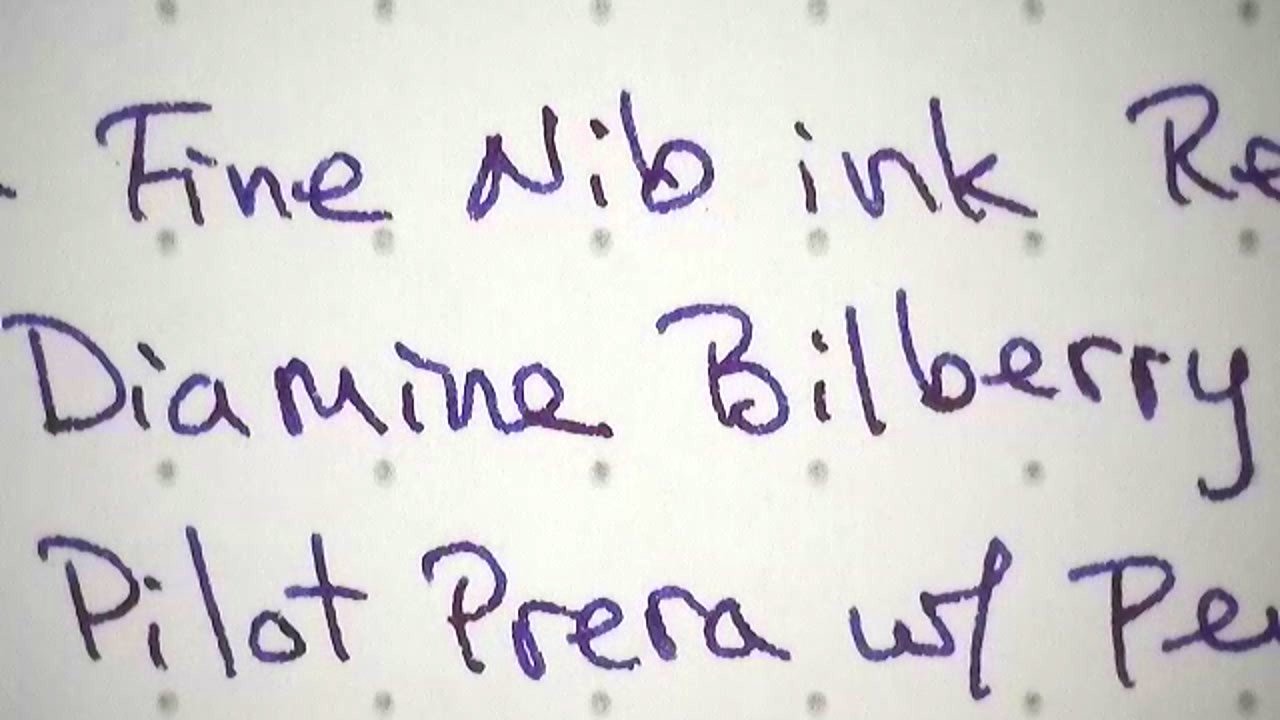 Fine Nib ink Re
Diamine Bilberry
Pilot Prera w/ Pe